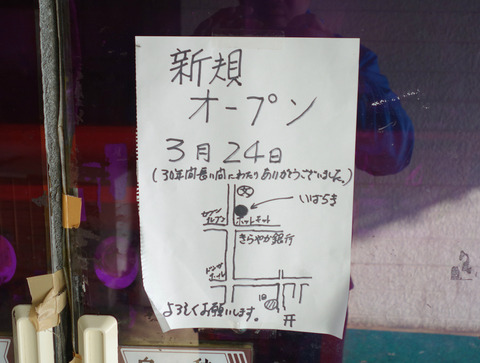 新規
オープン
3月24日
(30年間長い間にわたりありがとうございました。)
文
いばらき
セブン
イレブン
ホットモット
きらやか銀行
ドンカ
ホール
旧
よろしくお願いします。